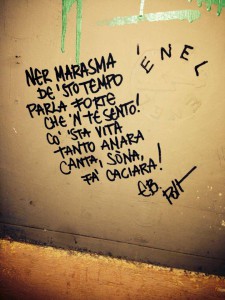 'ENEL
NER MARASMA
DE 'STO TEMPO
PARLA FORTE
CHE 'N TE SENTO!
CO' 'STA VITA
TANTO AMARA
CANTA, SÒNA,
FA' CACIARA!